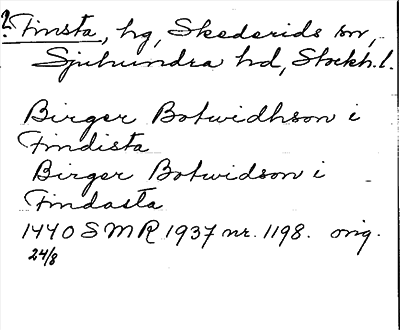 ? Finsta, hg, Skederids sn,
Sjuhundra hd, Stockh.l.
Birger Botwidhson i
Findista
Birger Botwidson i
Findasta
1440 SMR 1937 nr. 1198. orig.
24/8